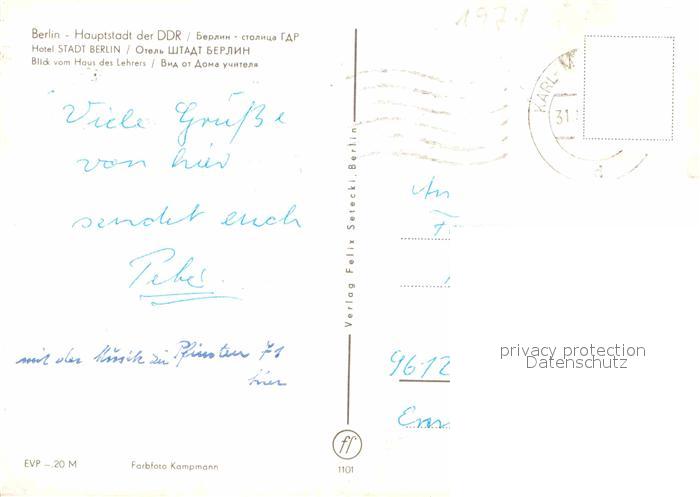 1971
Berlin - Hauptstadt der DDR / Берлин - столица ГДР
Hotel STADT BERLIN / Отель ШТАДТ БЕРЛИН
Blick vom Haus des Lehrers / Вид от Дома учителя
KARL-M
31
Viele Grüße
von hier
sendet euch
mit der Musik zu Pfinsten 71
hier
Verlag Felix Setecki, Berlin
An
F
9612
privacy protection
Datenschutz
ff
1101
EVP –.20 M
Farbfoto Kampmann